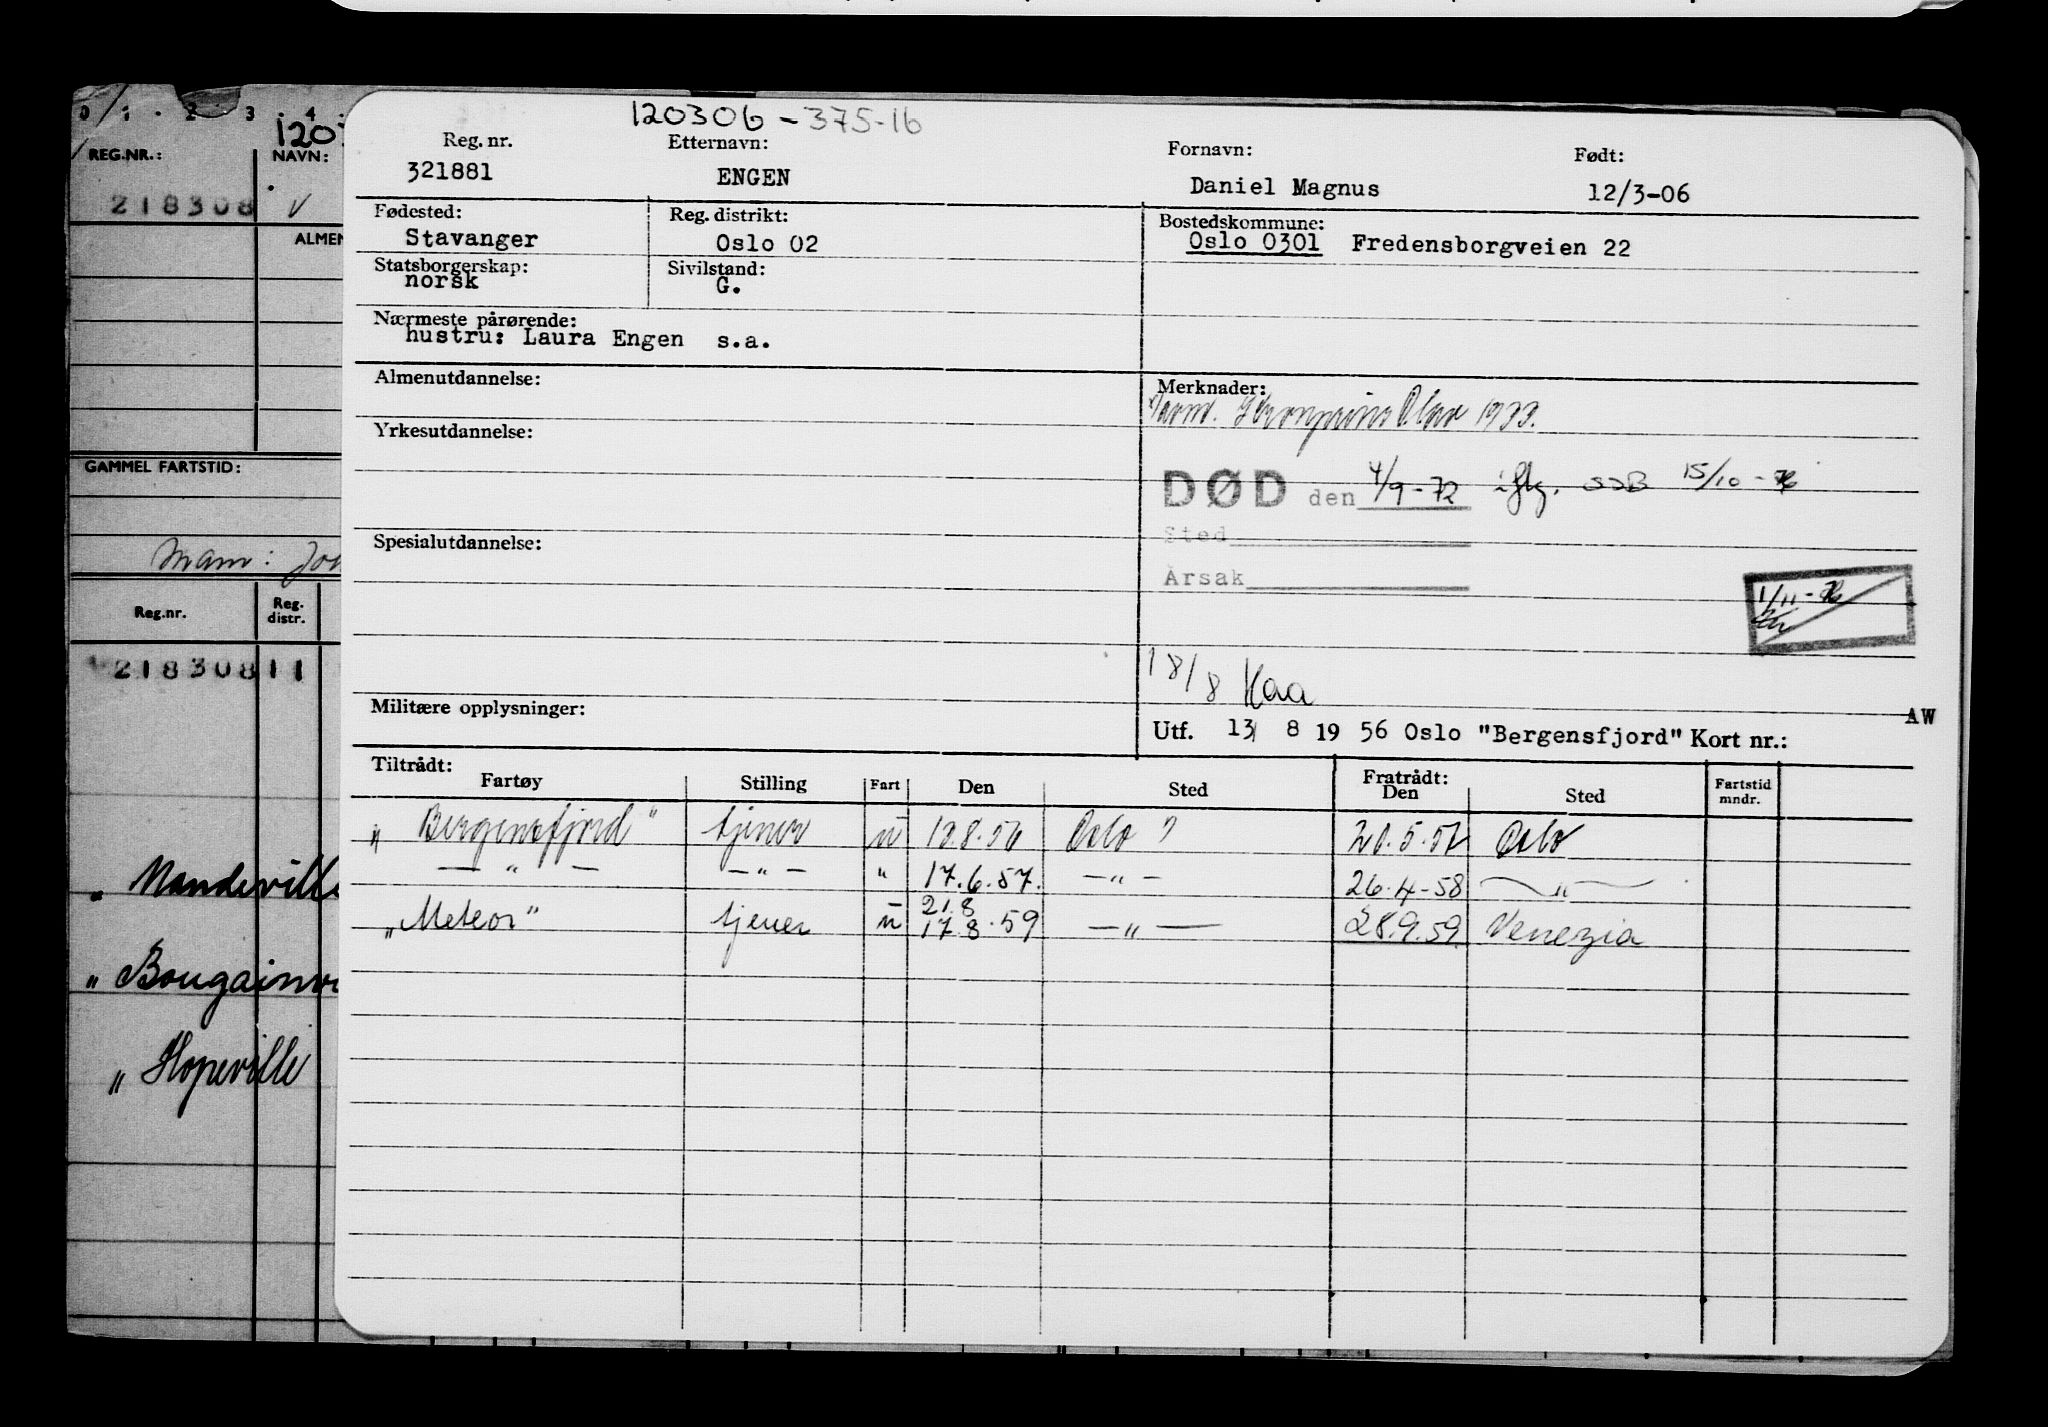 0 1 2 3 4
120306-375-16
120
REG.NR.: NAVN:
218308 v
ALMEN
GAMMEL FARTSTID:
Mam:
Reg.nr. Reg. distr.
21830811
„Mandeville
„Bougainv
„Hopeville
Reg. nr. Etternavn: Fornavn: Født:
321881 ENGEN Daniel Magnus 12/3-06
Fødested: Reg. distrikt: Bostedskommune:
Stavanger Oslo 02 Oslo 0301 Fredensborgveien 22
Statsborgerskap: Sivilstand:
norsk G.
Nærmeste pårørende:
hustru: Laura Engen s.a.
Almenutdannelse: Merknader:
Kronprins Olav 1933.
Yrkesutdannelse:
DØD den 4/9-72 iflg. SSB 15/10-76
Sted
Spesialutdannelse:
Årsak
1/11-76
18/8 Kaa
Militære opplysninger:
AW
Utf. 13/ 8 19 56 Oslo "Bergensfjord" Kort nr.:
Tiltrådt: Fratrådt:
Fartøy Stilling Fart Den Sted Den Sted Fartstid mndr.
„Bergensfjord" tjener u 13.8.56 Oslo 21.5.57 Oslo
— „ — — „ — „ 17.6.57. — „ — 26.4-58 — „ —
21.8
„Meteor" tjener u 17.8.59 — „ — 28.9.59 Venezia